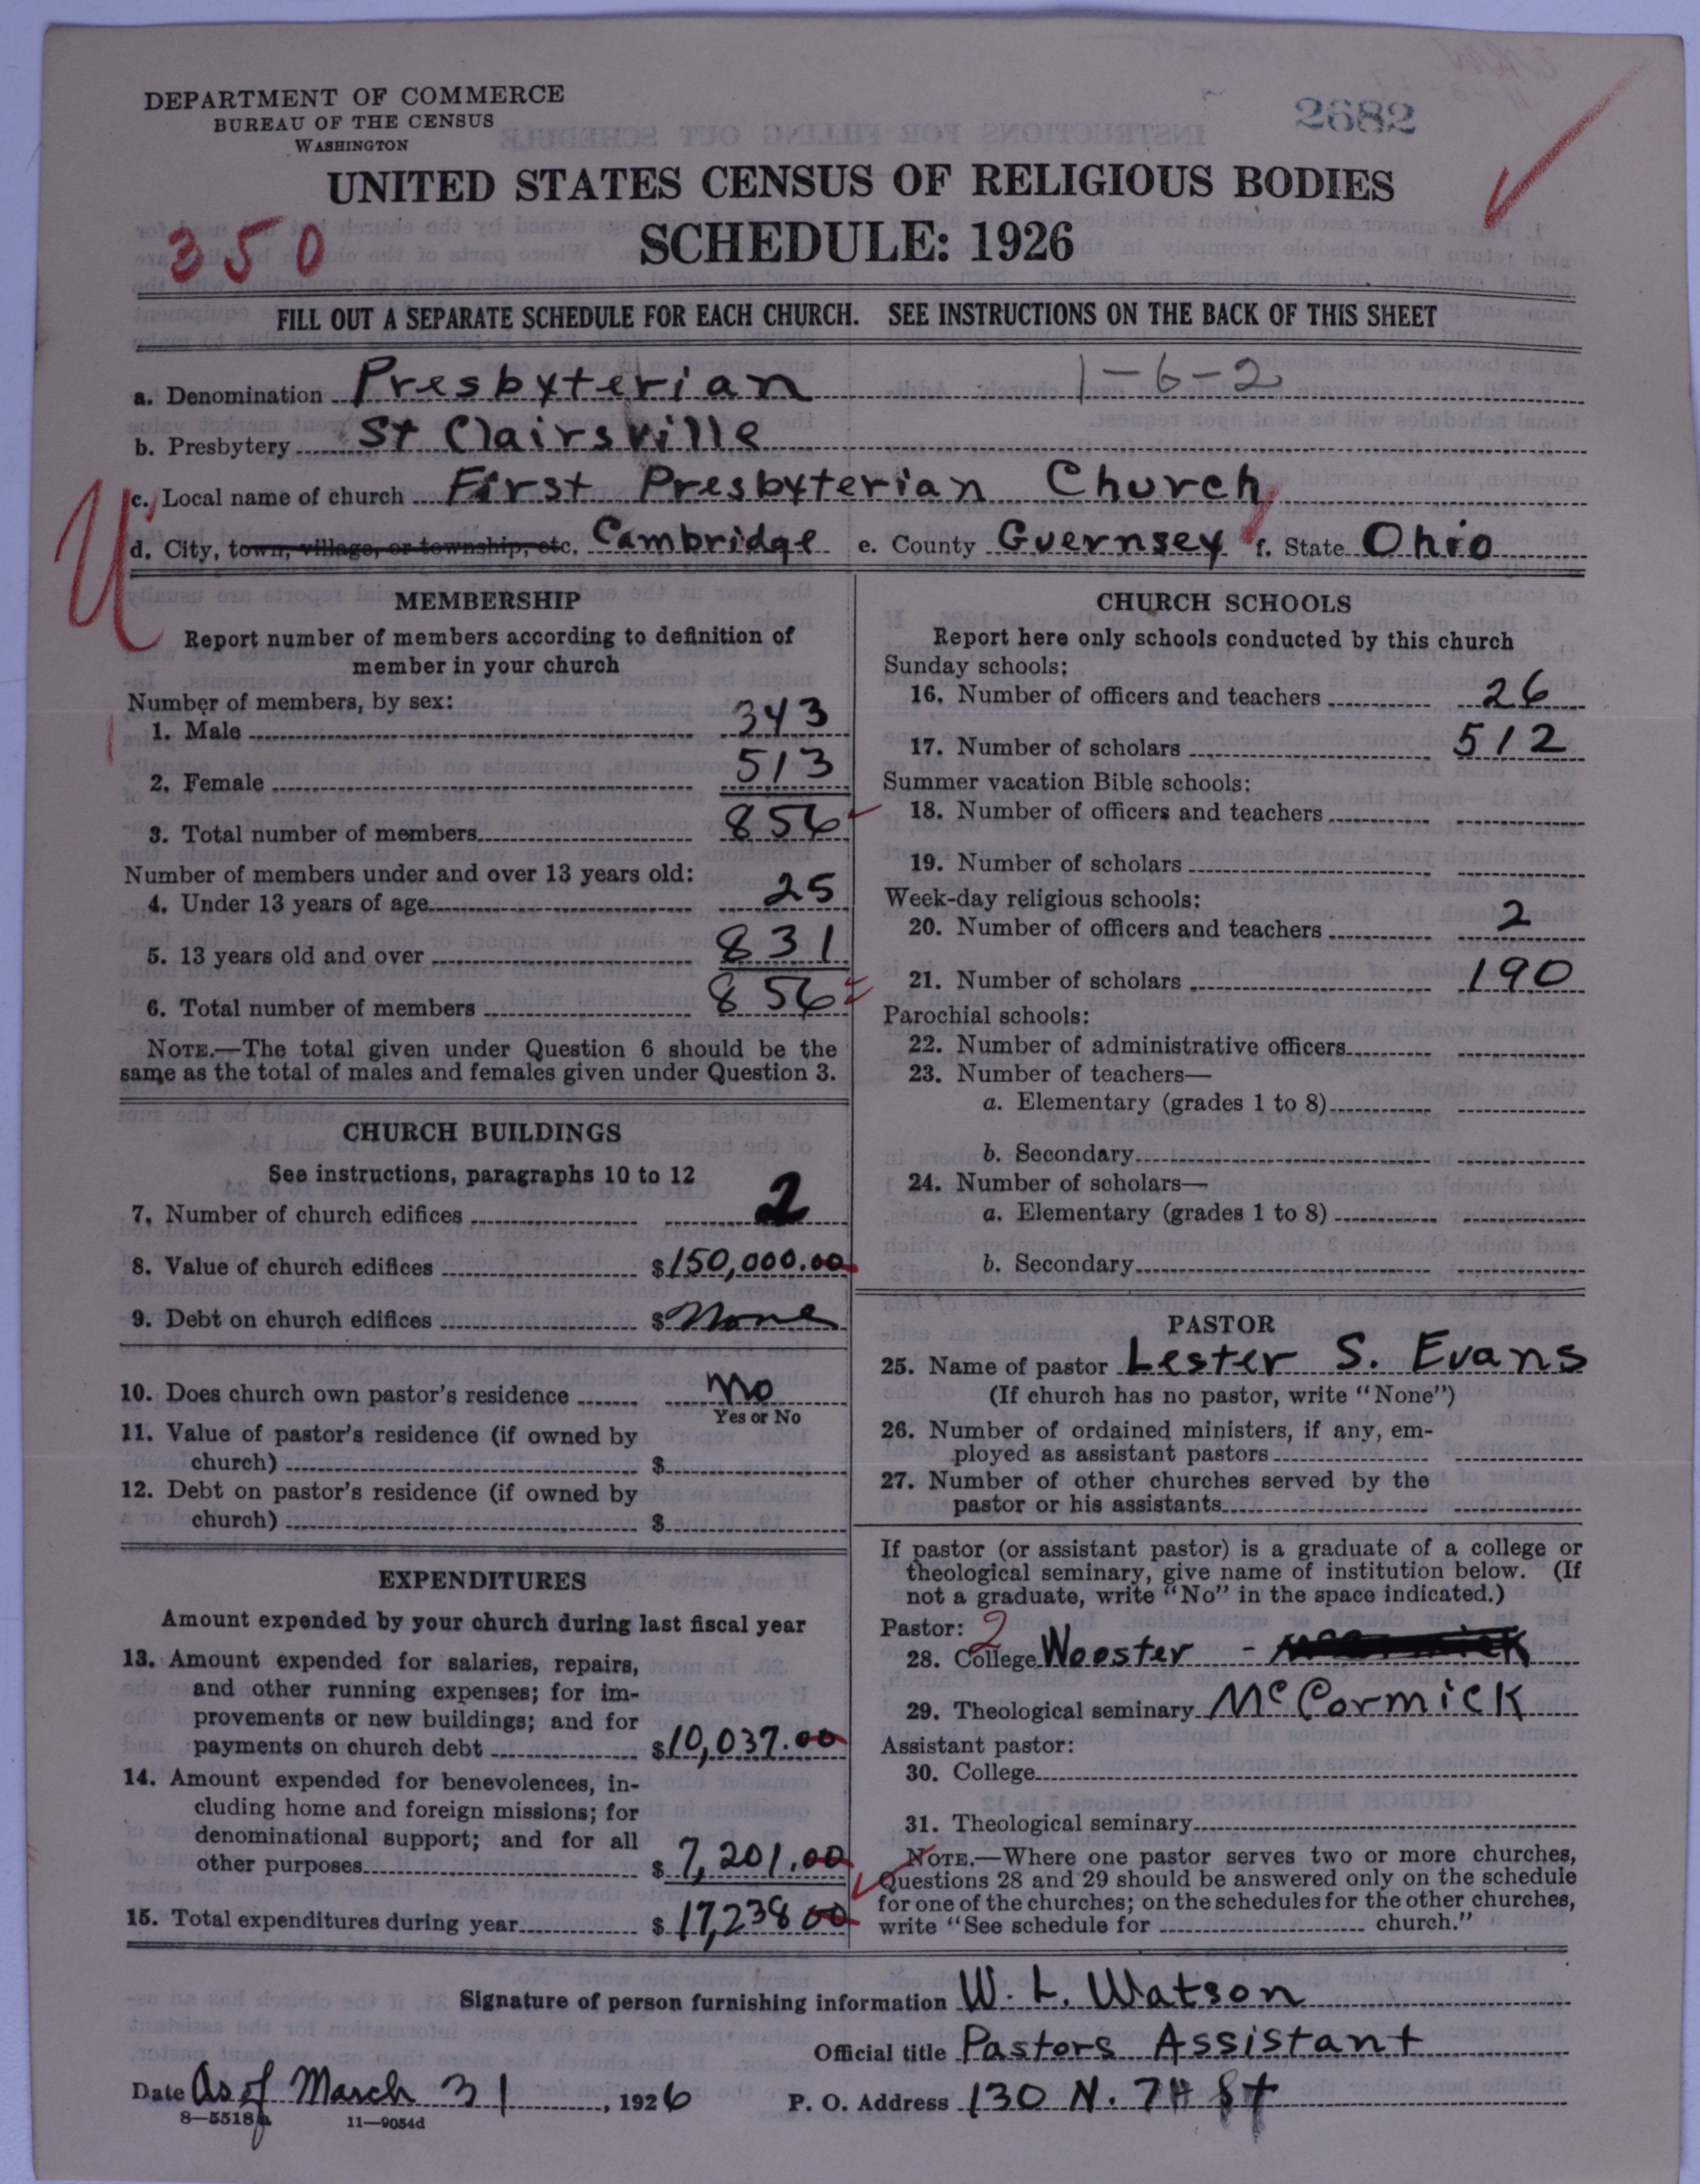 DEPARTMENT OF COMMERCE
BUREAU OF THE CENSUS
WASHINGTON
2682
UNITED STATES CENSUS OF RELIGIOUS BODIES
SCHEDULE: 1926
350
FILL OUT A SEPARATE SCHEDULE FOR EACH CHURCH. SEE INSTRUCTIONS ON THE BACK OF THIS SHEET
a. Denomination Presbyterian 1-6-2
b. Presbytery St Clairsville
c. Local name of church First Presbyterian Church
d. City, town, village, or township, etc. Cambridge e. County Guernsey f. State Ohio
MEMBERSHIP
Report number of members according to definition of
member in your church
Number of members, by sex:
1. Male 343
2. Female 513
3. Total number of members 856
Number of members under and over 13 years old:
4. Under 13 years of age 25
5. 13 years old and over 831
6. Total number of members 856
NOTE.—The total given under Question 6 should be the
same as the total of males and females given under Question 3.
CHURCH BUILDINGS
See instructions, paragraphs 10 to 12
7. Number of church edifices 2
8. Value of church edifices $150,000.00
9. Debt on church edifices $None
10. Does church own pastor's residence No
Yes or No
11. Value of pastor's residence (if owned by
church) $
12. Debt on pastor's residence (if owned by
church) $
EXPENDITURES
Amount expended by your church during last fiscal year
13. Amount expended for salaries, repairs,
and other running expenses; for im-
provements or new buildings; and for
payments on church debt $10,037.00
14. Amount expended for benevolences, in-
cluding home and foreign missions; for
denominational support; and for all
other purposes $7,201.00
15. Total expenditures during year $17,238 00
CHURCH SCHOOLS
Report here only schools conducted by this church
Sunday schools:
16. Number of officers and teachers 26
17. Number of scholars 512
Summer vacation Bible schools:
18. Number of officers and teachers
19. Number of scholars
Week-day religious schools:
20. Number of officers and teachers 2
21. Number of scholars 190
Parochial schools:
22. Number of administrative officers
23. Number of teachers—
a. Elementary (grades 1 to 8)
b. Secondary
24. Number of scholars—
a. Elementary (grades 1 to 8)
b. Secondary
PASTOR
25. Name of pastor Lester S. Evans
(If church has no pastor, write "None")
26. Number of ordained ministers, if any, em-
ployed as assistant pastors
27. Number of other churches served by the
pastor or his assistants
If pastor (or assistant pastor) is a graduate of a college or
theological seminary, give name of institution below. (If
not a graduate, write "No" in the space indicated.)
Pastor: 2
28. College Wooster -
29. Theological seminary McCormick
Assistant pastor:
30. College
31. Theological seminary
NOTE.—Where one pastor serves two or more churches,
Questions 28 and 29 should be answered only on the schedule
for one of the churches; on the schedules for the other churches,
write "See schedule for church."
Signature of person furnishing information W. L. Watson
Official title Pastors Assistant
Date As of March 31, 1926 P. O. Address 130 N. 7th St
8—5518a 11—9054d